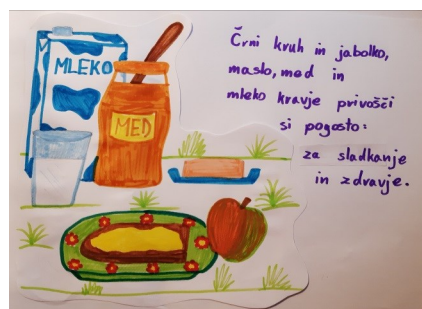 MLEKO
MED
Črni kruh in jabolko,
maslo, med in
mleko kravje privošči
si pogosto:
za sladkanje
in zdravje.